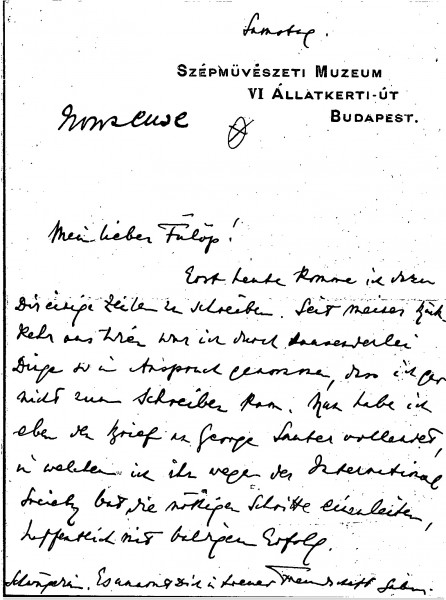 Samstag.
SZÉPMÜVÉSZETI MUZEUM
VI ÁLLATKERTI-ÚT
BUDAPEST.
Mein lieber Fülöp!
Erst heute komme ich dazu
Dir einige Zeilen zu schreiben. Seit meiner Rück
kehr aus Wien war ich durch tausenderlei
Dinge so in Anspruch genommen, dass ich gar
nicht zum Schreiben kam. Nun habe ich
eben den Brief an George Sauter vollendet,
in welchem ich ihn wegen der International
Society bat, die nötigen Schritte einzuleiten,
hoffentlich mit baldigem Erfolg.
Es umarmt Dich in treuer Freundschaft